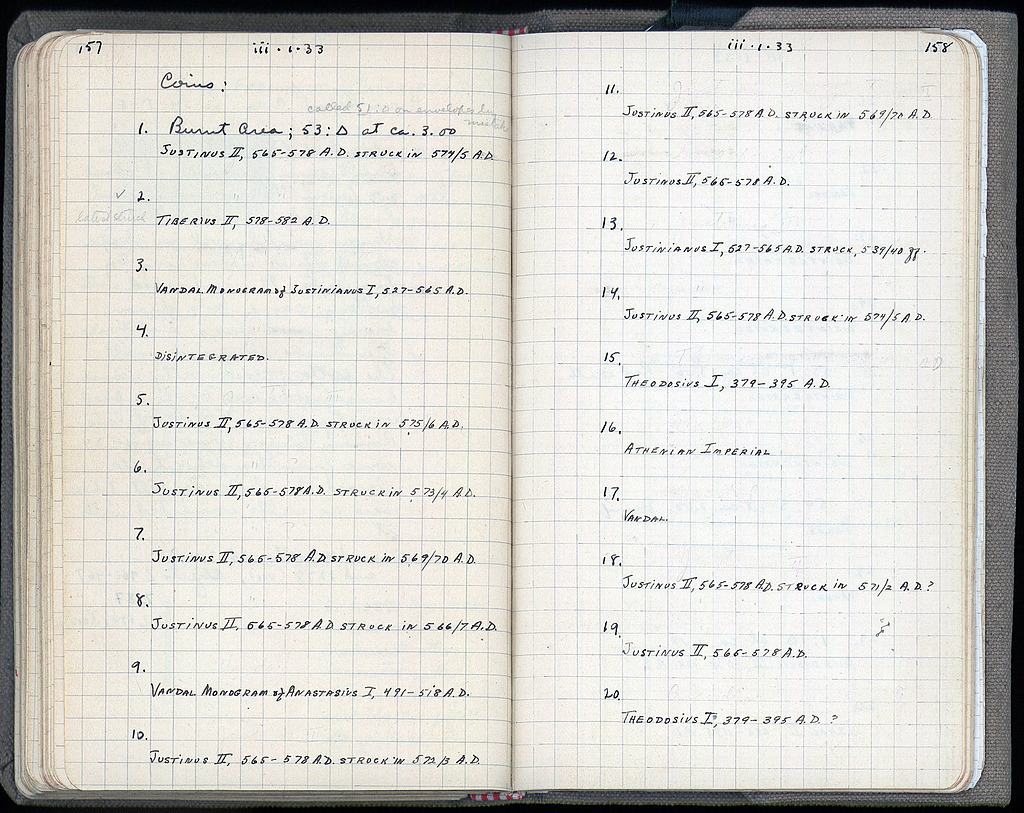 157
iii · 1 · 33
Coins:
called 51:Δ on envelopes by
mistake
1. Burnt Area; 53:Δ at ca. 3.00
Justinus II, 565-578 A.D. struck in 574/5 A.D.
✓ 2.
latest struck
Tiberius II, 578-582 A.D.
3.
Vandal Monogram of Justinianus I, 527-565 A.D.
4.
Disintegrated.
5.
Justinus II, 565-578 A.D. struck in 575/6 A.D.
6.
Justinus II, 565-578 A.D. struck in 573/4 A.D.
7.
Justinus II, 565-578 A.D. struck in 569/70 A.D.
8.
Justinus II, 565-578 A.D. struck in 566/7 A.D.
9.
Vandal Monogram of Anastasius I, 491-518 A.D.
10.
Justinus II, 565-578 A.D. struck in 572/3 A.D.
iii · 1 · 33
158
11.
Justinus II, 565-578 A.D. struck in 569/70 A.D.
12.
Justinus II, 565-578 A.D.
13.
Justinianus I, 527-565 A.D. struck, 539/40 ff.
14.
Justinus II, 565-578 A.D. struck in 574/5 A.D.
15.
Theodosius I, 379-395 A.D.
16.
Athenian Imperial
17.
Vandal.
18.
Justinus II, 565-578 A.D. struck in 571/2 A.D.?
19.
Justinus II, 565-578 A.D.
20.
Theodosius I, 379-395 A.D.?